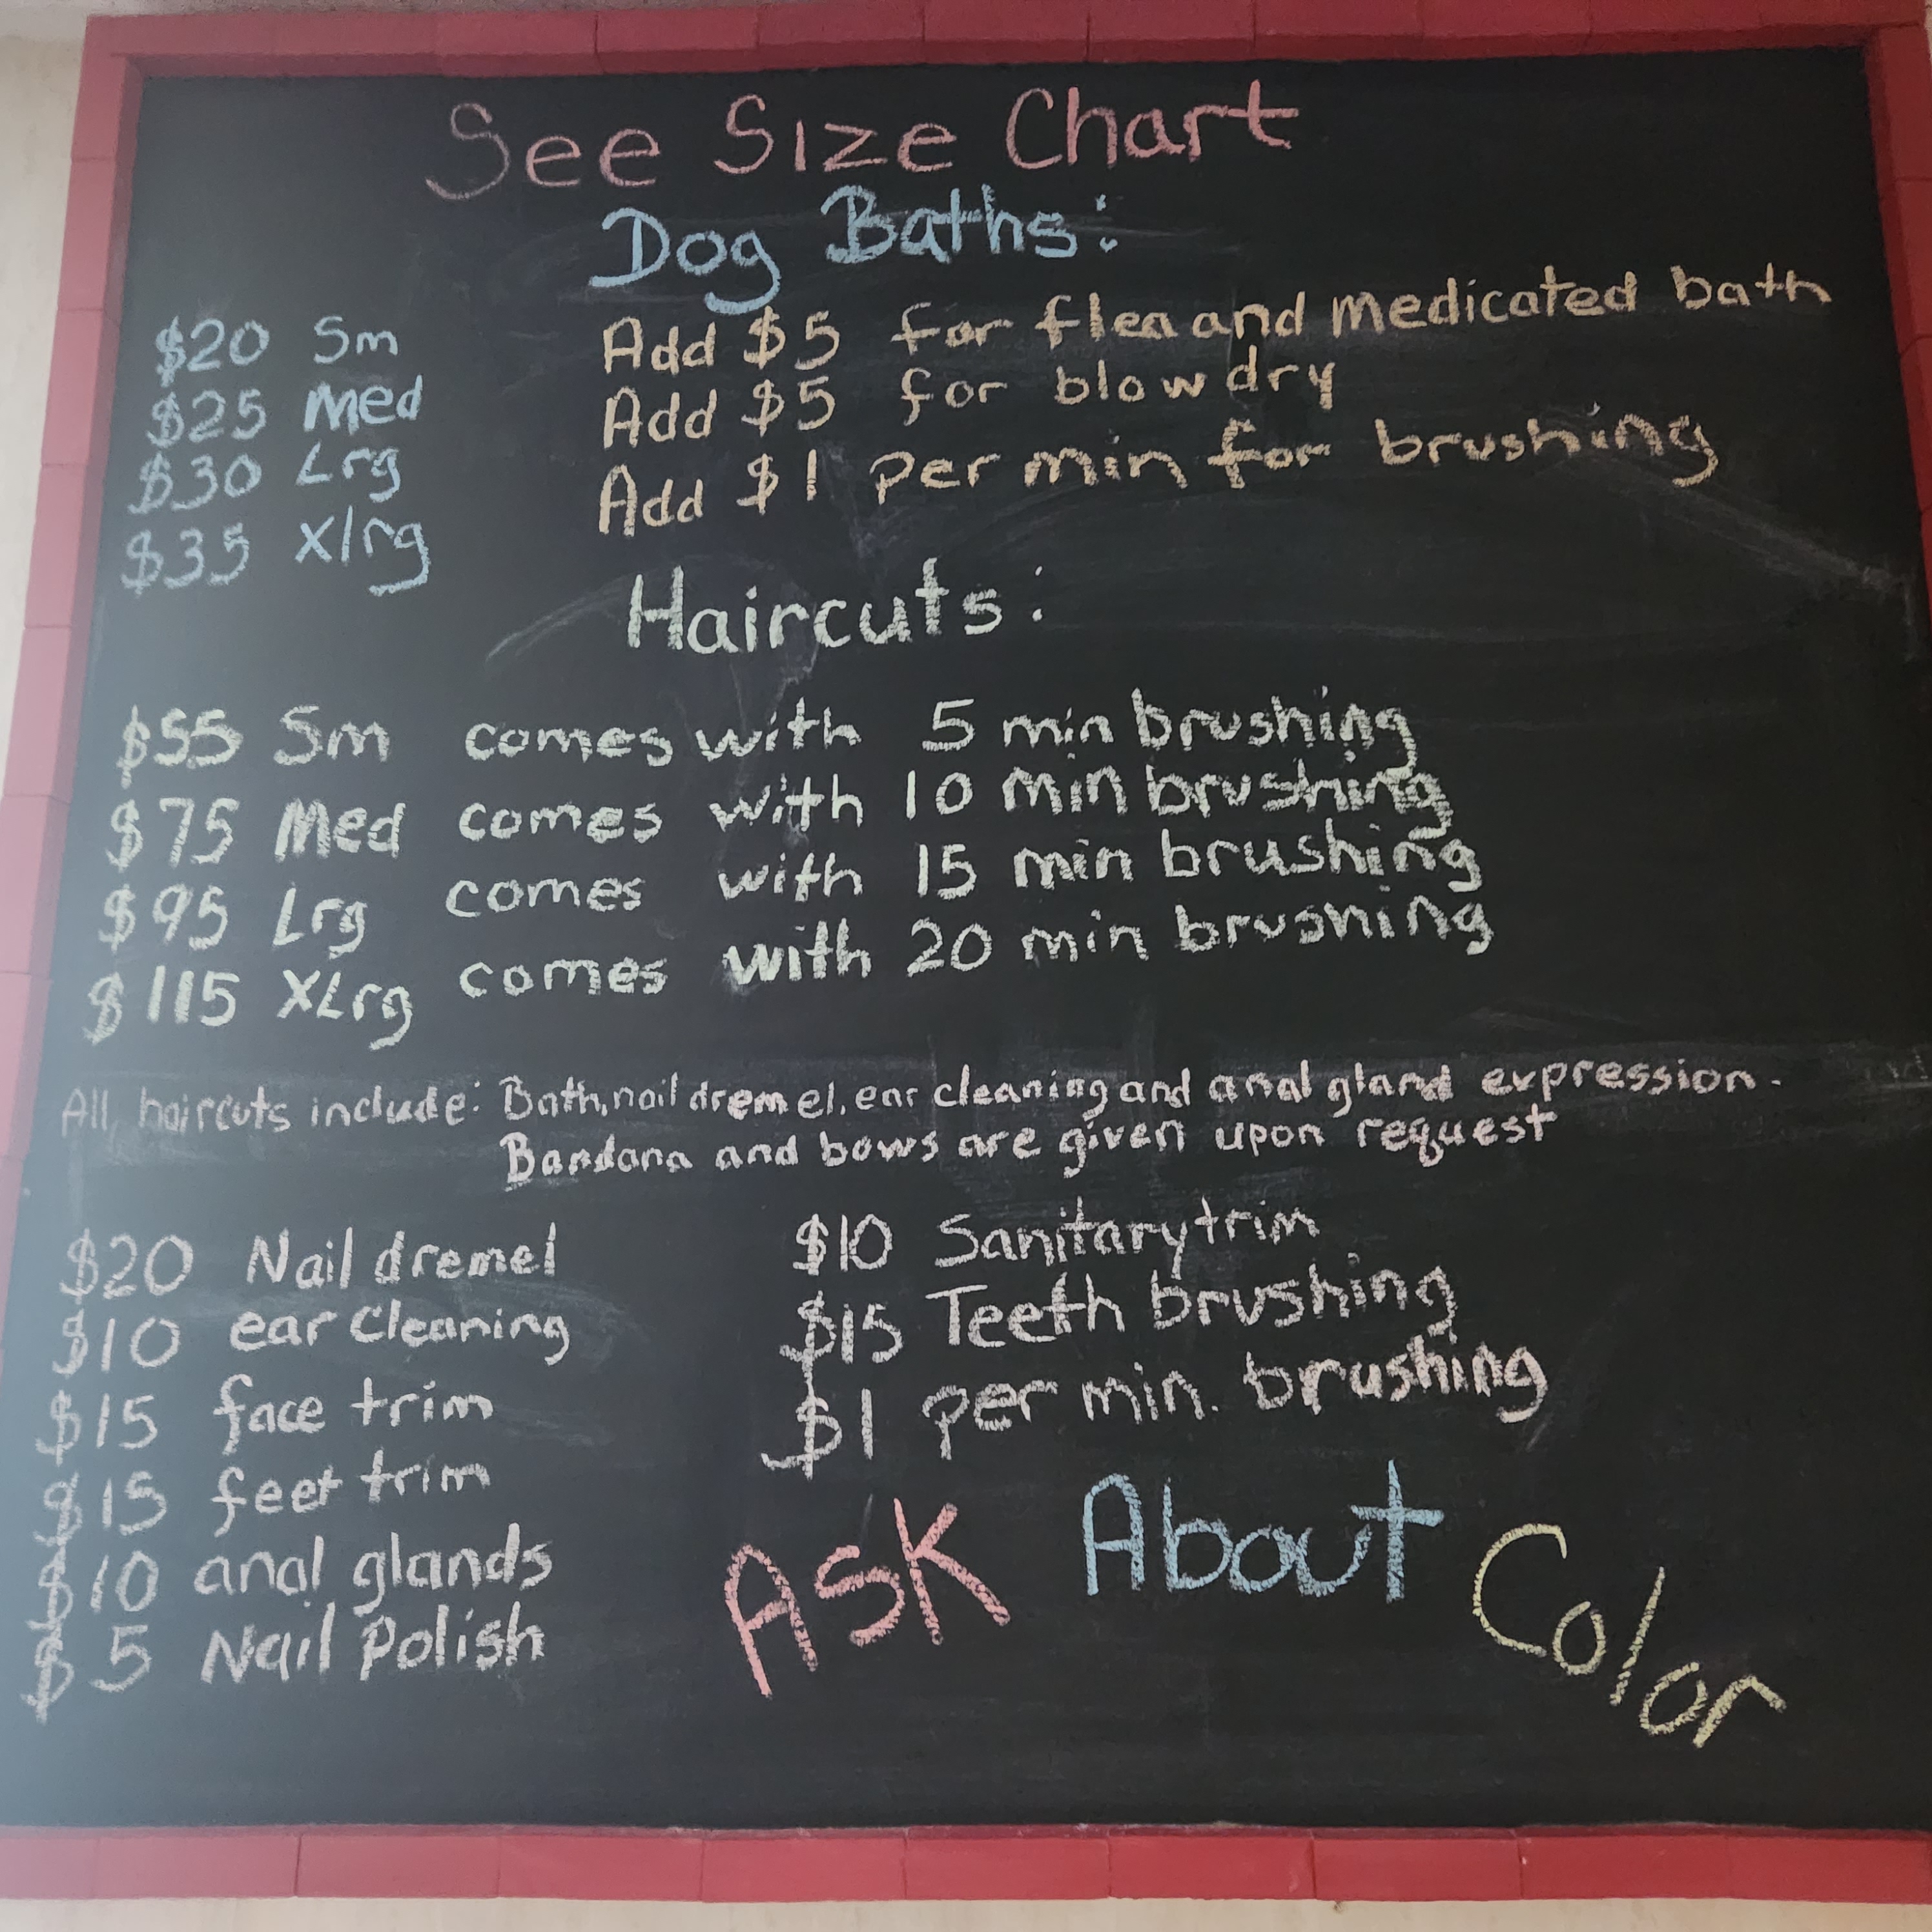 See Size Chart
Dog Baths:
$20 Sm
$25 Med
$30 Lrg
$35 Xlrg
Add $5 for flea and medicated bath
Add $5 for blow dry
Add $1 per min for brushing
Haircuts:
$55 Sm comes with 5 min brushing
$75 Med comes with 10 min brushing
$95 Lrg comes with 15 min brushing
$115 XLrg comes with 20 min brushing
All haircuts include: Bath, nail dremel, ear cleaning and anal gland expression.
Bandana and bows are given upon request
$20 Nail dremel
$10 ear Cleaning
$15 face trim
$15 feet trim
$10 anal glands
$5 Nail Polish
$10 Sanitary trim
$15 Teeth brushing
$1 per min. brushing
ASK About Color